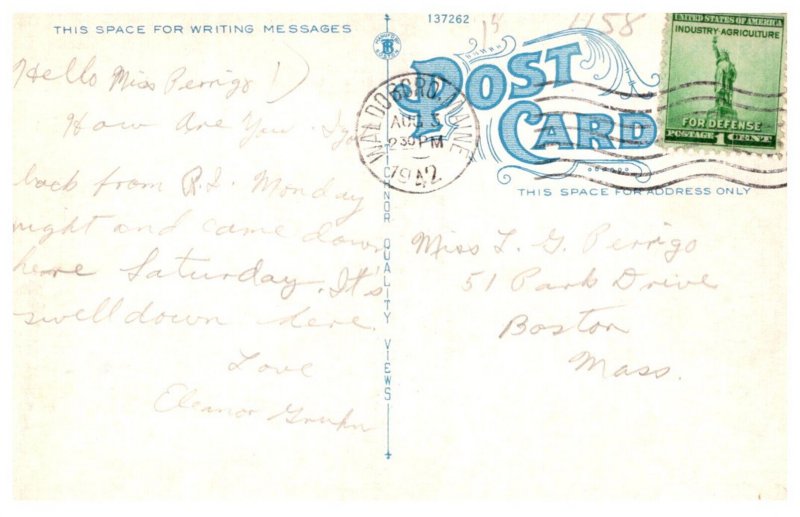 THIS SPACE FOR WRITING MESSAGES
Hello Miss Perrigo
How Are You. I
back from R.I. Monday
night and came down
here Saturday. It's
swell down here.
Love
Eleanor
CHNOR QUALITY VIEWS
137262
15
1158
POST
CARD
WALDOBORO, MAINE
AUG 5
2 30 PM
1942
UNITED STATES OF AMERICA
INDUSTRY-AGRICULTURE
FOR DEFENSE
POSTAGE 1 CENT
THIS SPACE FOR ADDRESS ONLY
Miss L. G. Perrigo
51 Park Drive
Boston
Mass.